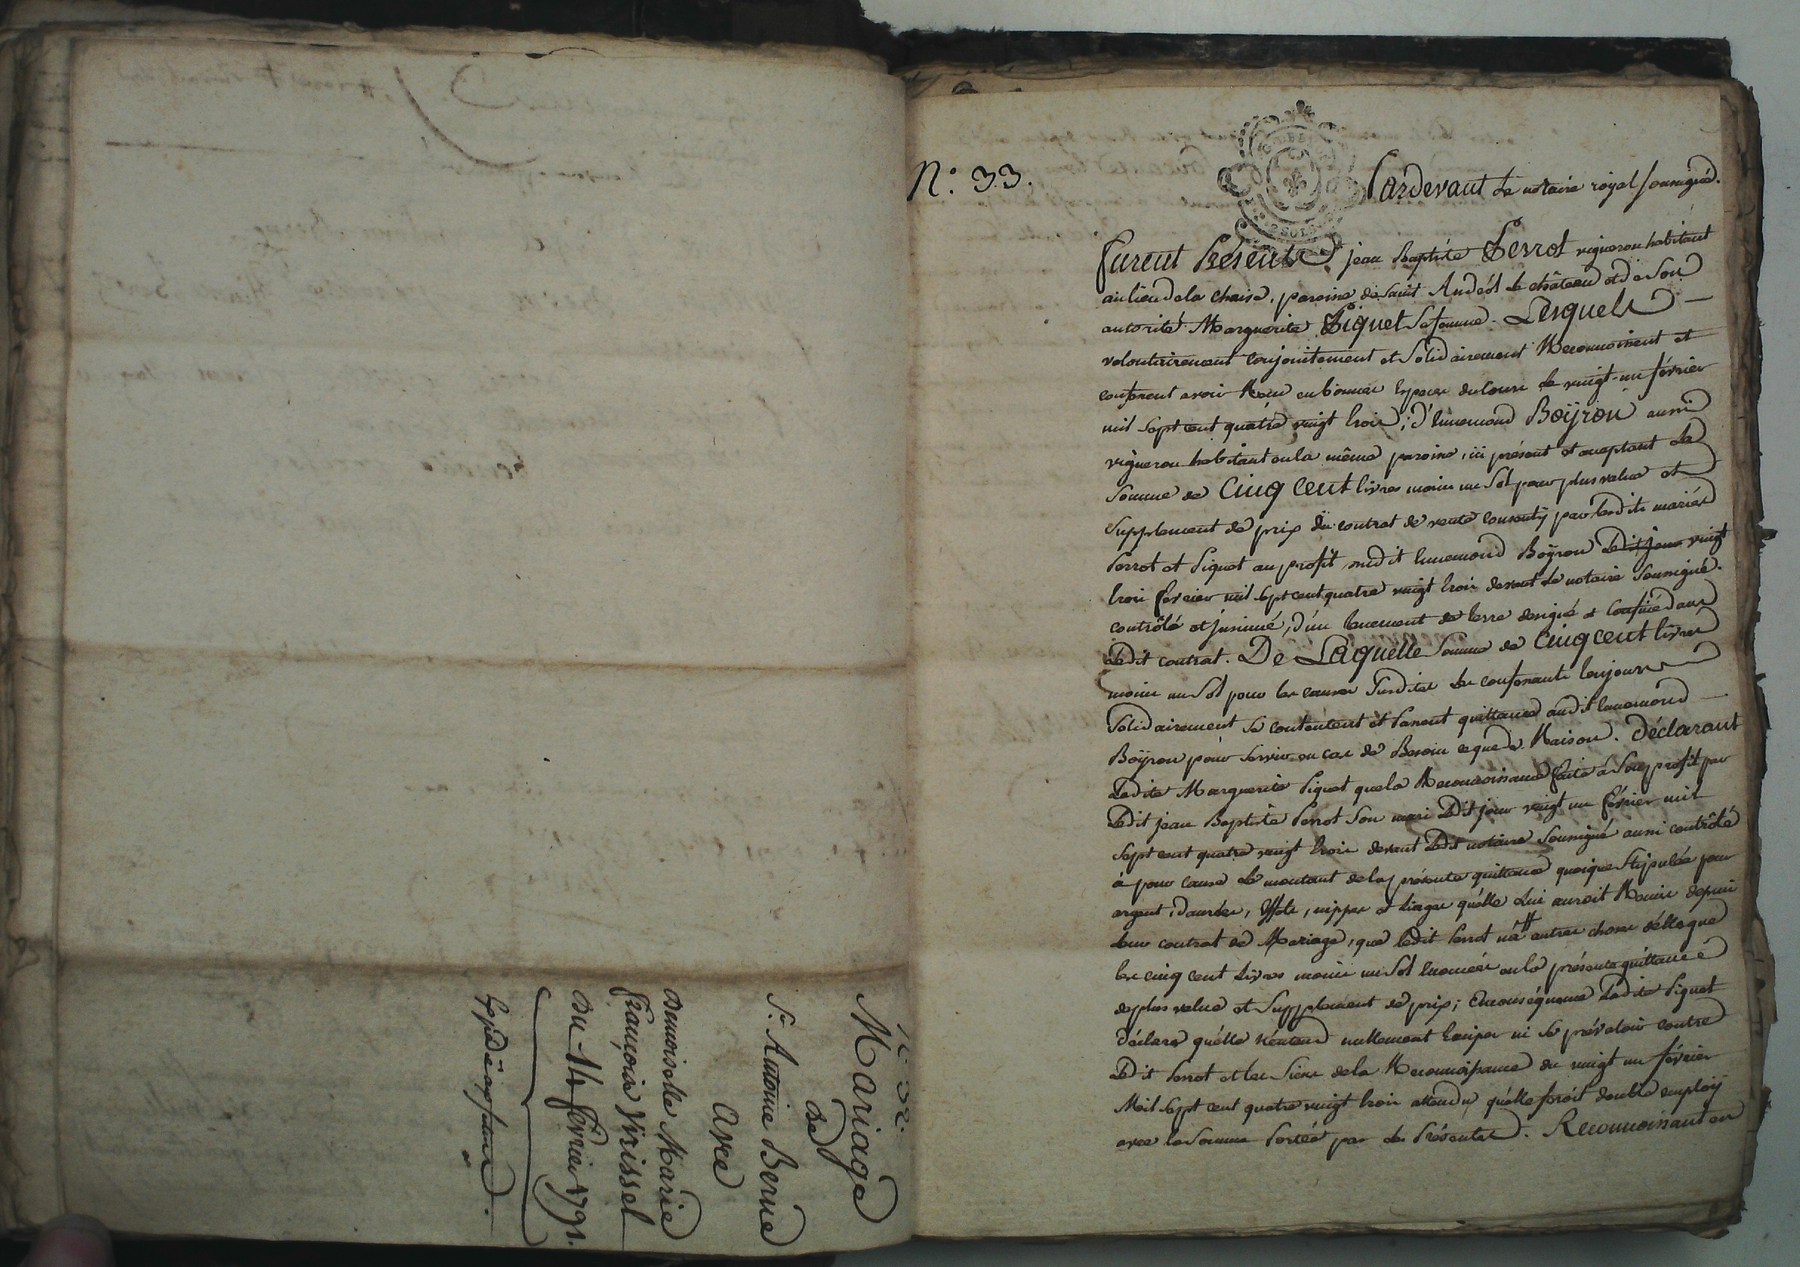 N.° 32.
Mariage
de
Sr. Antoine Berne
avec
demoiselle Marie
françoise Virissel
du 14 fevrier 1791.
N.° 33.
Pardevant Le notaire royal soussigné.
furent Présents jean Baptiste Perrot vigneron habitant
au lieu de la chaise, paroisse de saint Andéol Le château et de Son
autorité Marguerite Piquet Sa femme. Lesquels
volontairement conjointement et Solidairement Reconnoissent et
confessent avoir Reçu en bonnes Especes du cours Le vingt-un février
mil sept cent quatre vingt trois, d'Ennemond Boÿron aussi
vigneron habitant en la même paroisse, ici présent et acceptant La
Somme de Cinq Cent livres moins un Sol pour plus value et
Supplement de prix du contrat de vente consenty par lesdits mariés
Perrot et Piquet au profit dudit Ennemond Boÿron Ledit jour vingt
trois février mil sept cent quatre vingt trois devant Le notaire Soussigné.
contrôlé et jnsinué, d'un tenement de terre designé et Confiné dans
Ledit contrat. De Laquelle Somme de Cinq cent livres
moins un Sol pour les causes Susdites Les confessants toujours
Solidairement Se contentent et Passent quittance audit Ennemond
Boÿron pour servir en cas de Besoin ce que de Raison. Déclarant
Ladite Marguerite Piquet que la Reconnoissance faite à Son profit par
Ledit jean Baptiste Perrot Son mari Ledit jour vingt un février mil
sept cent quatre vingt trois devant Ledit notaire Soussigné aussi contrôlé
à pour cause Le montant de la présente quittance quoique Stipulée pour
argent, danrées, Effets, nippes et Linges qu'elle Lui auroit Remis depuis
Leur contrat de Mariage, que Ledit Perrot n'a eu autres choses d'elle que
les cinq cent Livres moins un Sol Enoncées en la présente quittance
de plus value et Supplement de prix; En conséquence Ladite Piquet
déclare qu'elle n'entend nullement Exiper ni Se prévaloir contre
Ledit Perrot et les Siens de la Reconnoissance du vingt un février
Mil sept cent quatre vingt trois attendu qu'elle feroit double employ
avec la Somme Portée par Les Présentes. Reconnoissant en